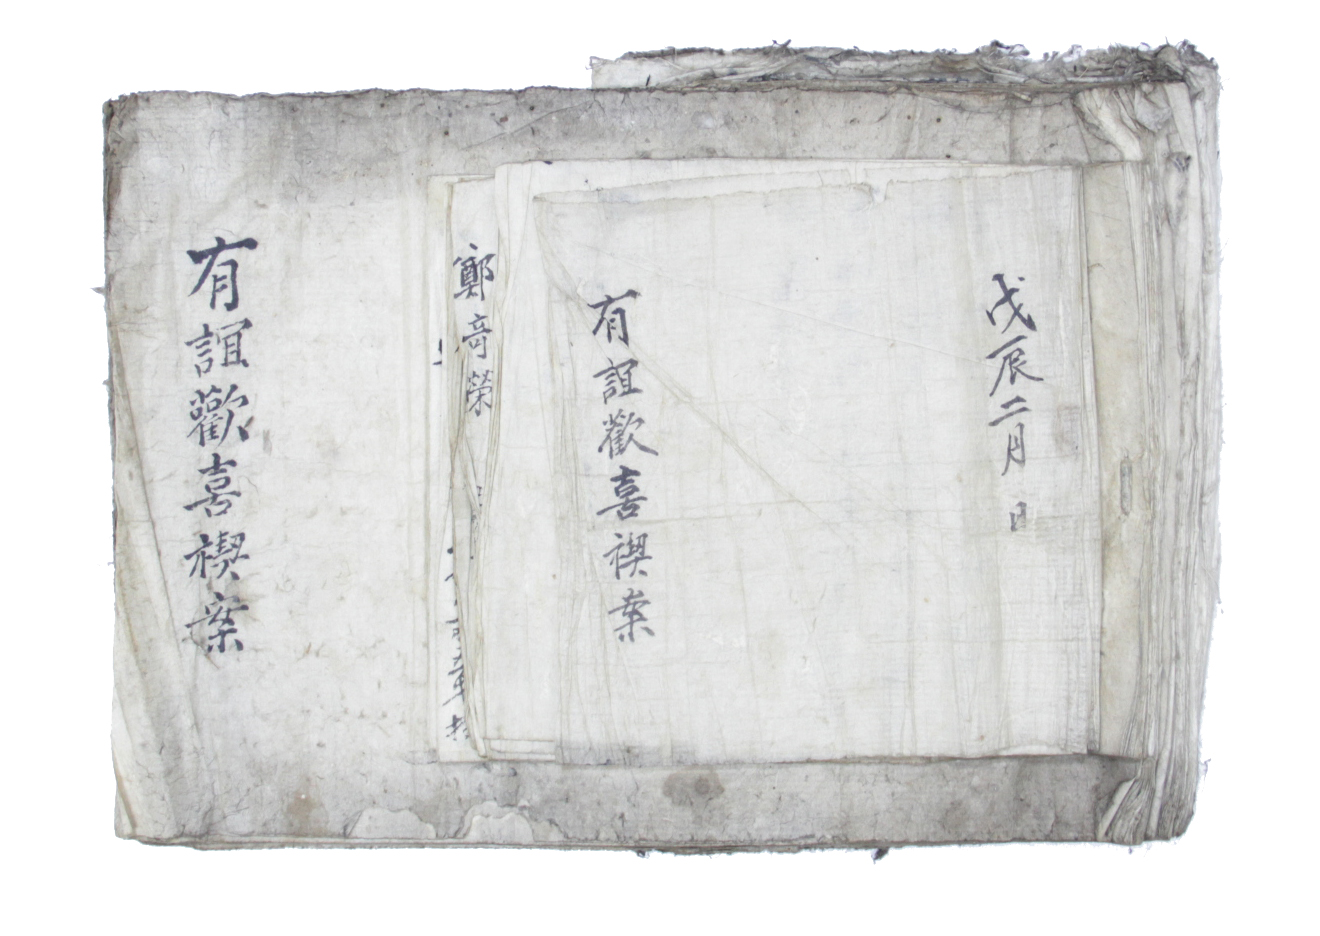 戊辰二月 日
有誼歡喜禊案
鄭奇榮
有誼歡喜禊案